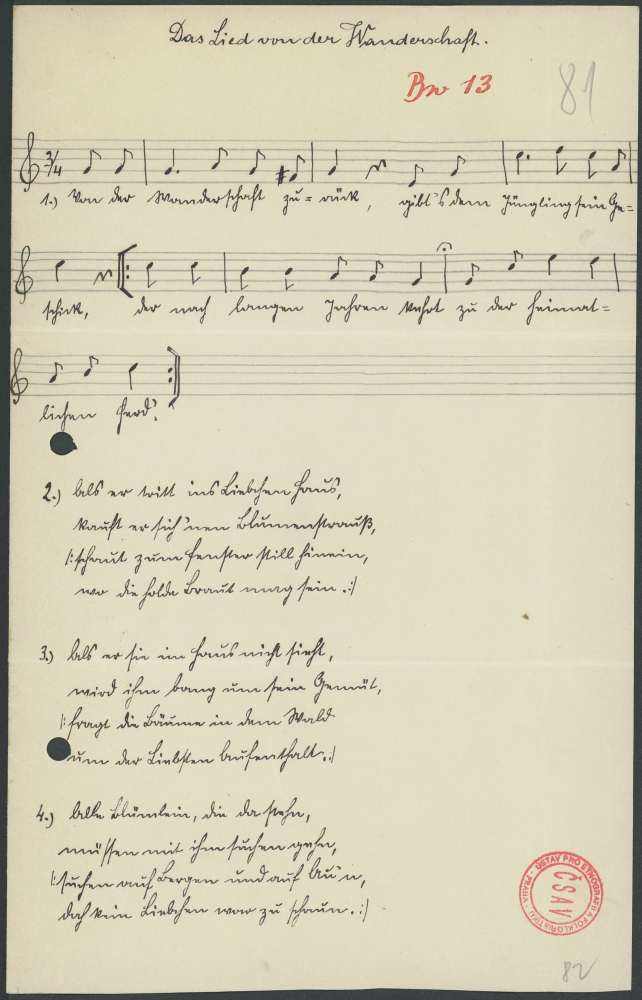 Das Lied von der Wanderschaft.
Bw 13
81
3/4
1.) Von der Wanderschaft zu=rück, gibt's dem Jüngling sein Ge=
schick, der nach langen Jahren kehrt zu der heimat=
lichen Herd.
2.) Als er tritt ins Liebchen Haus,
kauft er sich 'nen Blumenstrauß,
/: schaut zum Fenster still hinein,
wo die holde Braut mag sein. :/
3.) Als er sie im Haus nicht sieht,
wird ihm bang um sein Gemüt,
/: fragt die Bäume in dem Wald
um der Liebsten Aufenthalt. :/
4.) Alle Blümlein, die da stehn,
müssen mit ihm suchen gehn,
/: suchen auf Bergen und auf Au'n,
doch kein Liebchen war zu schaun. :/
ÚSTAV PRO ETHNOGRAFII A FOLKLORISTIKU · PRAHA ·
ČSAV
82